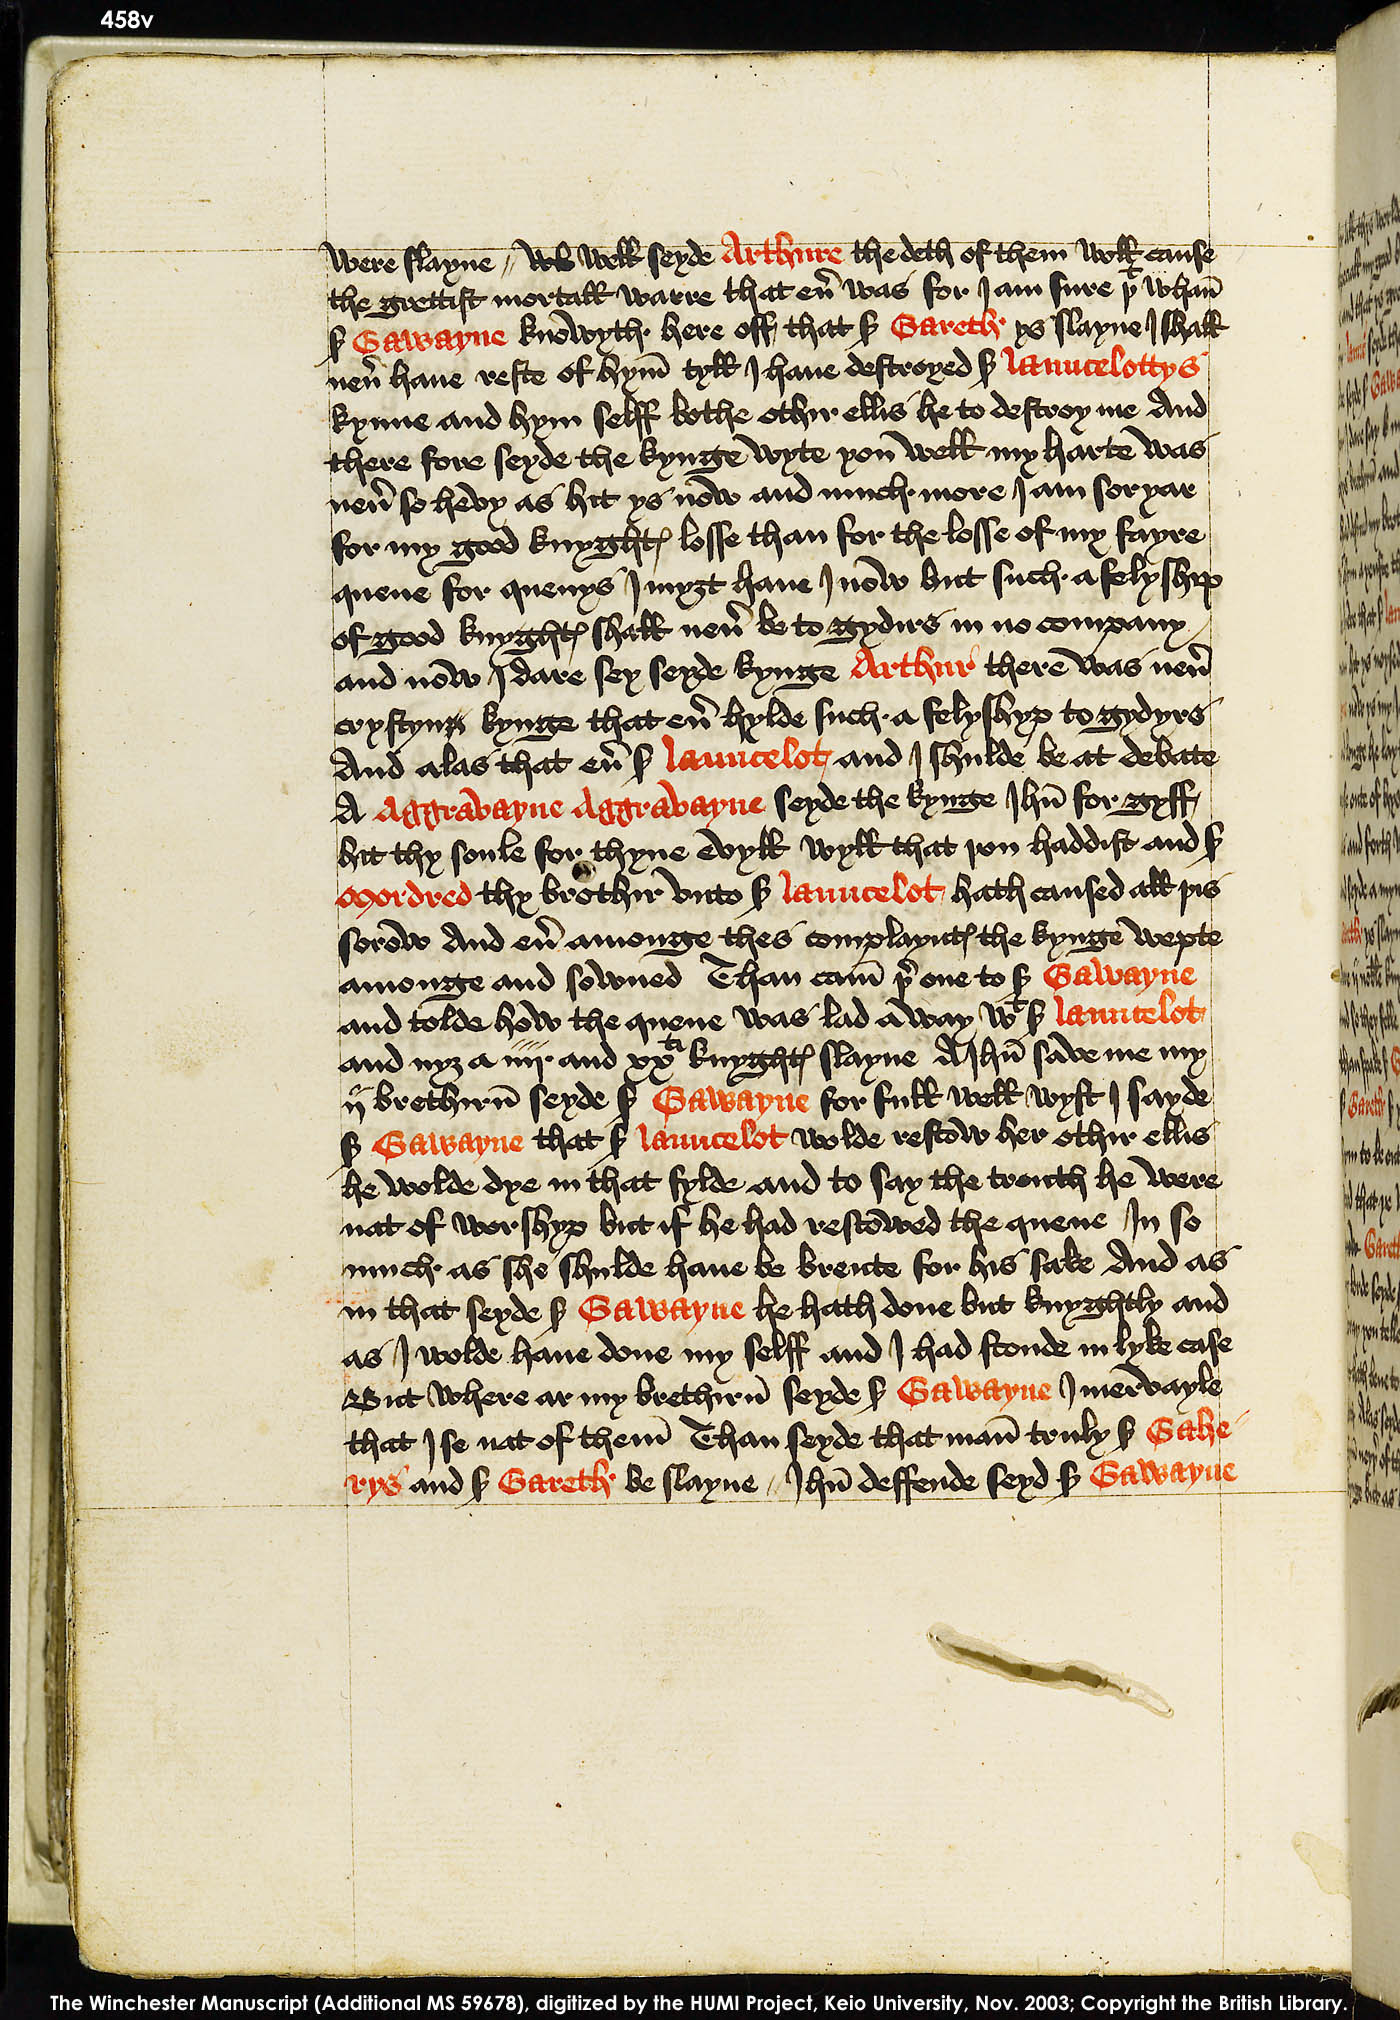 458v
were slayne // W{{ll}} well seyde Arthure the deth of them woll cause
the grettist mortall warre that eũ was for I am sure þᵗ whañ
ẜ Gawayne knowyth here off that ẜ Gareth ys slayne I shall
neũ haue reste of hym̃ tyll I haue destroyed ẜ launcelottys
kynne and hym selff bothe othir ellis he to destroy me And
there fore seyde the kynge wyte you well my harte was
neũ so hevy as hit ys now and much more I am soryar
for my good knyghtꝭ losse than for the losse of my fayre
quene for quenys I myȝt haue Inow but such a felyship
of good knyghtꝭ shall neũ be to gydirs in no company
and now I dare sey seyde kynge Arthur there was neũ
crystyn kynge that eũ hylde such a felyshyp to gydyrs
And alas that eũ ẜ launcelot and I shulde be at debate
A Aggravayne Aggravayne seyde the kynge Ihũ for gyff
hit thy soule for thyne evyll wyll that þou haddist and ẜ
Mordred thy brothir vnto ẜ launcelot hath caused all þis
sorow And eũ amonge thes complayntꝭ the kynge wepte
amonge and sowned Than cam̃ þ̃ one to ẜ Gawayne
and tolde how the quene was lad away wᵗ ẜ launcelot
and nyȝ a iiij and xxᵗⁱ knyghtꝭ slayne A Ihũ save me my
ij brethirñ seyde ẜ Gawayne for full well wyst I sayde
ẜ Gawayne that ẜ launcelot wolde restow her othir ellis
he wolde dye in that fylde and to say the trouth he were
nat of worshyp but if he had restowed the quene In so
much as she shulde haue be brente for his sake And as
in that seyde ẜ Gawayne he hath done but knyghtly and
as I wolde haue done my selff and I had stonde in lyke case
But where ar my brethirñ seyde ẜ Gawayne I mervayle
that I se nat of them̃ Than seyde that mañ truly ẜ Gahe
rys and ẜ Gareth be slayne // Ihũ deffende seyd ẜ Gawayne
The Winchester Manuscript (Additional MS 59678), digitized by the HUMI Project, Keio University, Nov. 2003; Copyright the British Library.